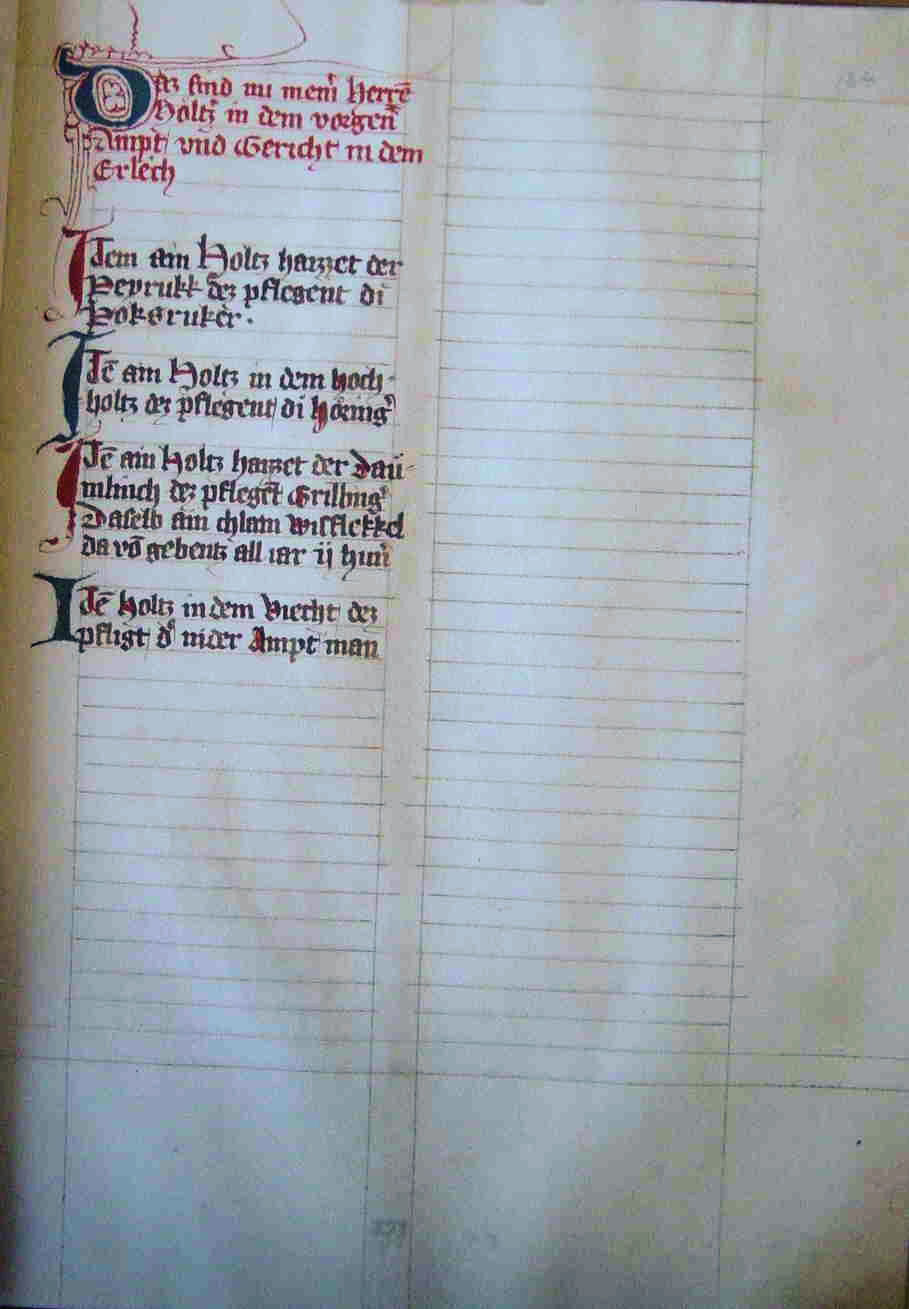 Ditz sind nu mein̄ Herrē
Höltz᷒ in dem vorgen̄
Ampt vnd Gericht in dem
Erlech
Item ain Holtz haizzet der
Peyrukk dez pflegent di
Poksruker.
Itē ain Holtz in dem hoch-
holtz dez pflegent di Höring᷒
Itē ain Holtz haizzet der
dez pflegēt Grilling᷒
Daselb ain chlain wisflekkel
da vō gebents all iar ij hun᷒
Itē Holtz in dem Viecht dez
pfligt d᷒ nider Ampt man